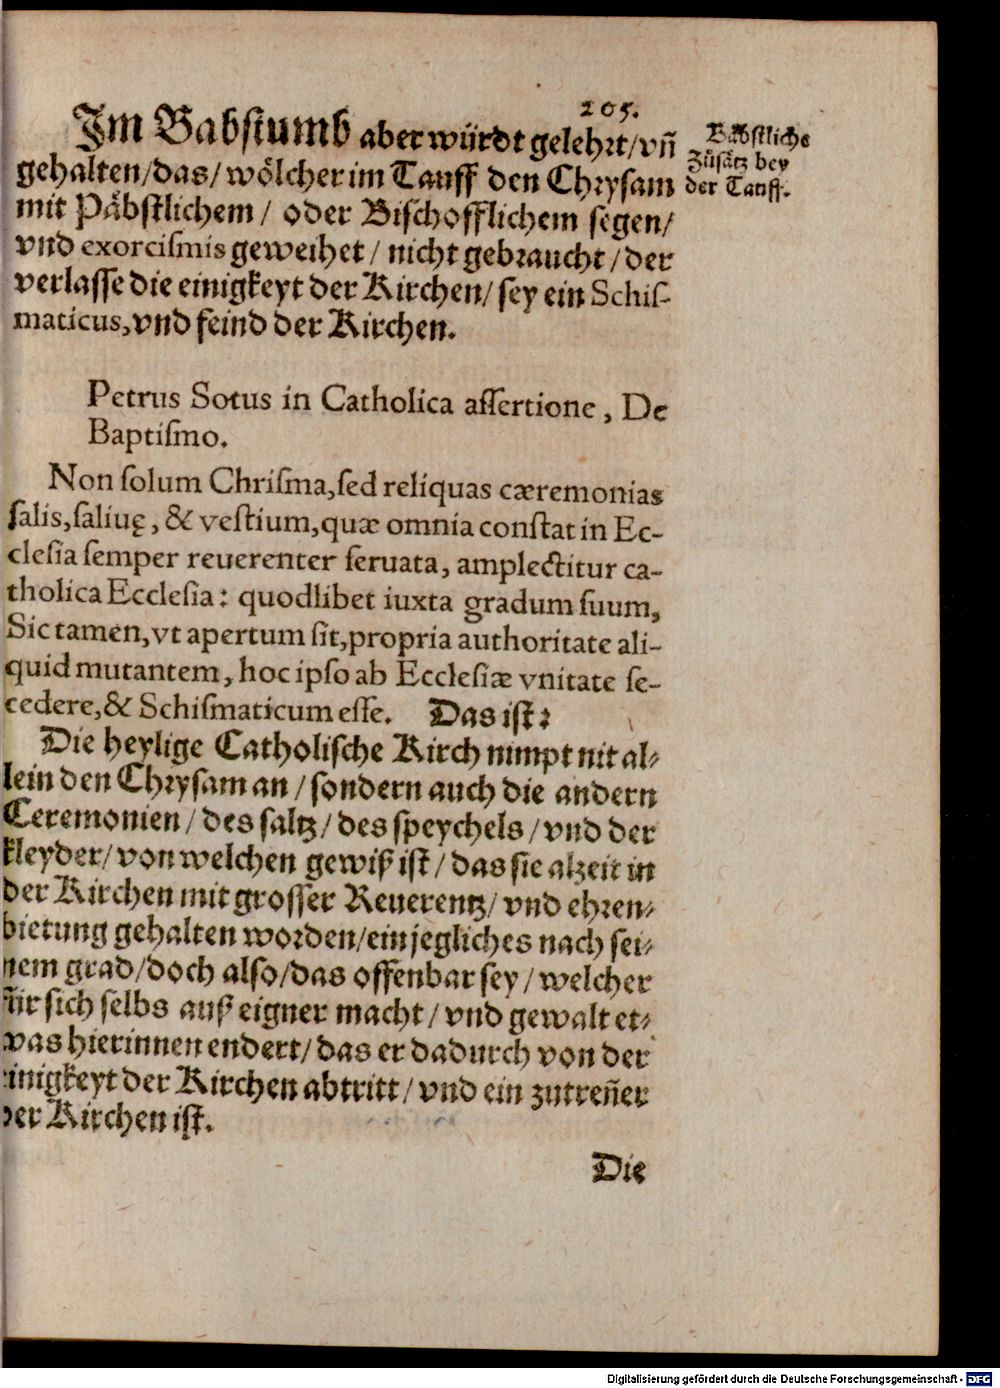 205.
Im Babstumb aber würdt gelehrt/vñ
gehalten/das/wölcher im Tauff den Chrysam
mit Päbstlichem/ oder Bischofflichem segen/
vnd exorcismis geweihet/ nicht gebraucht/der
verlasse die einigkeyt der Kirchen/ sey ein Schiſ-
maticus,vnd feind der Kirchen.
Bäbstliche
Zůsätz bey
der Tauff.
Petrus Sotus in Catholica aſſertione, De
Baptiſmo.
Non ſolum Chriſma,ſed reliquas cæremonias
ſalis,ſaliuę, & veſtium,quæ omnia conſtat in Ec-
cleſia ſemper reuerenter ſeruata, amplectitur ca-
tholica Eccleſia: quodlibet iuxta gradum ſuum,
Sic tamen,vt apertum ſit,propria authoritate ali-
quid mutantem, hoc ipſo ab Eccleſiæ vnitate ſe-
cedere,& Schiſmaticum eſſe. Das ist:
Die heylige Catholische Kirch nimpt nit al-
lein den Chrysam an/sondern auch die andern
Ceremonien/des saltz/des speychels/vnd der
kleyder/von welchen gewiß ist/das sie alzeit in
der Kirchen mit grosser Reuerentz/vnd ehren-
bietung gehalten worden/ein jegliches nach sei-
nem grad/doch also/das offenbar sey/welcher
für sich selbs auß eigner macht/vnd gewalt et-
was hierinnen endert/das er dadurch von der
einigkeyt der Kirchen abtritt/vnd ein zutreñer
der Kirchen ist.
Die
Digitalisierung gefördert durch die Deutsche Forschungsgemeinschaft - DFG